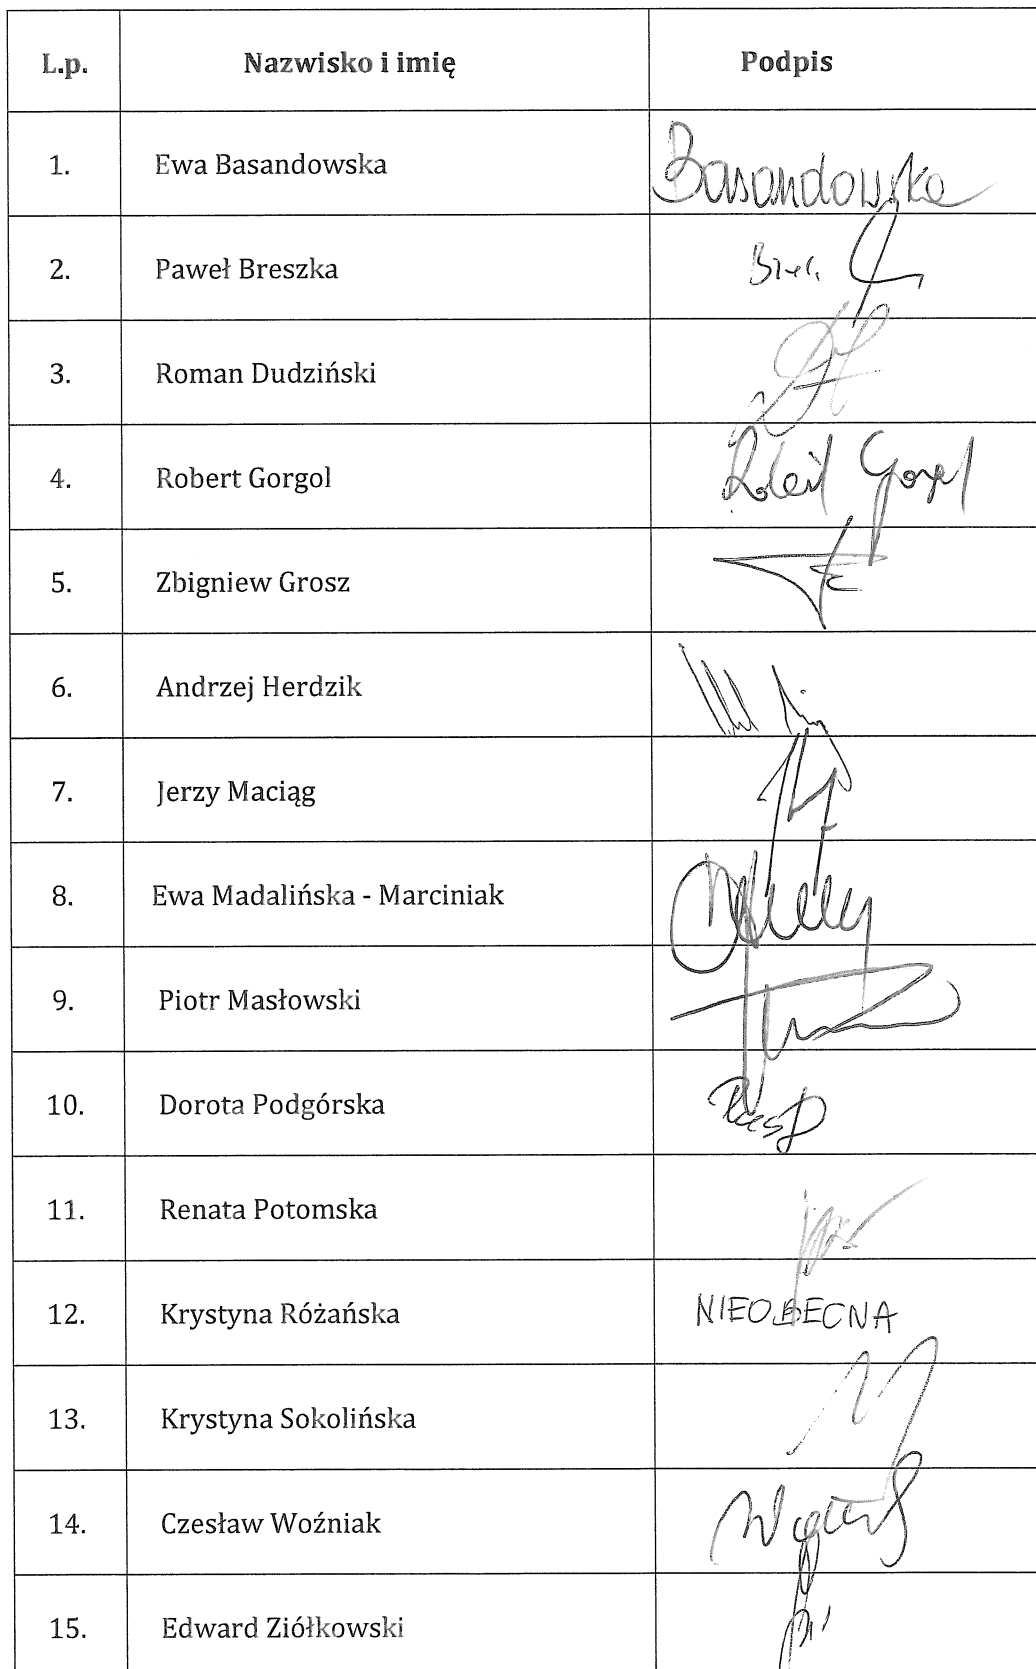 L.p. Nazwisko i imię Podpis
1. Ewa Basandowska Basandowska
2. Paweł Breszka
3. Roman Dudziński
4. Robert Gorgol Robert Gorgol
5. Zbigniew Grosz
6. Andrzej Herdzik
7. Jerzy Maciąg
8. Ewa Madalińska - Marciniak
9. Piotr Masłowski
10. Dorota Podgórska
11. Renata Potomska
12. Krystyna Różańska NIEOBECNA
13. Krystyna Sokolińska
14. Czesław Woźniak
15. Edward Ziółkowski